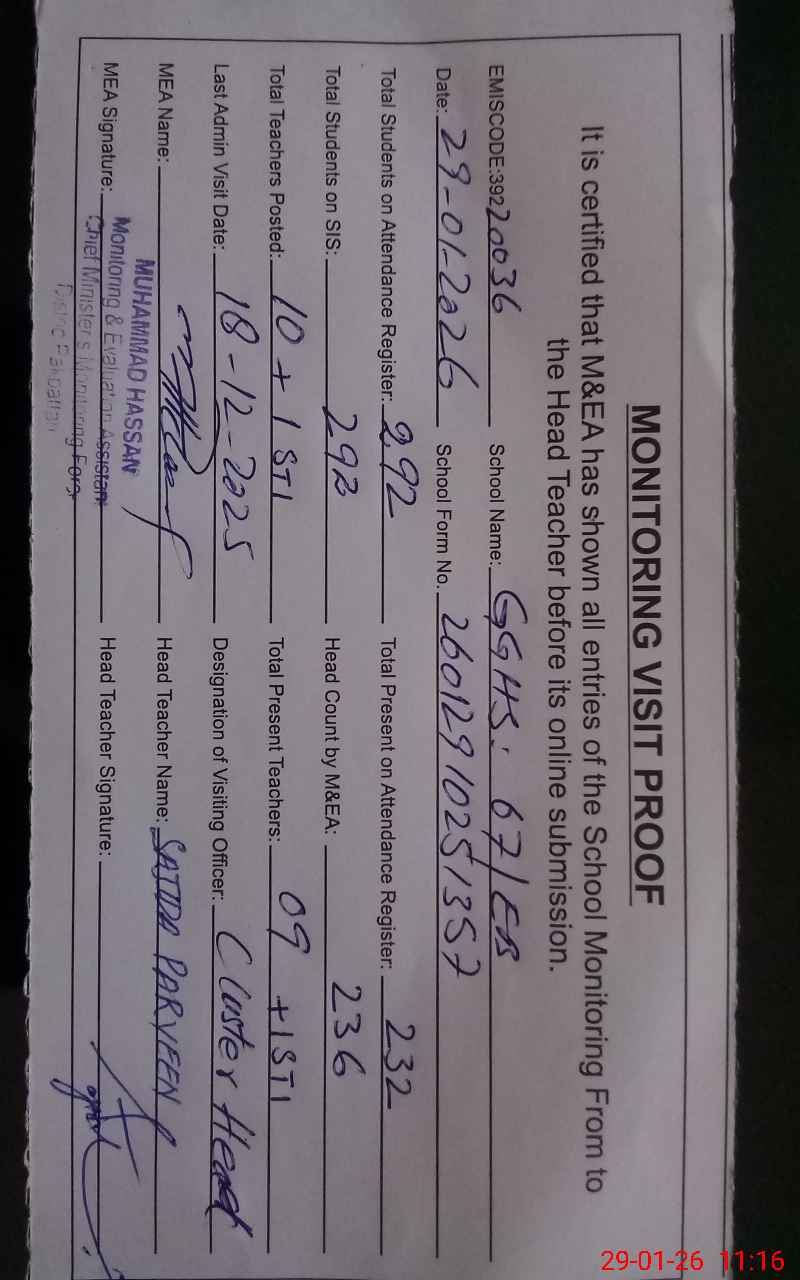 MONITORING VISIT PROOF
It is certified that M&EA has shown all entries of the School Monitoring From to
the Head Teacher before its online submission.
EMISCODE:39220036 School Name: GGHS. 67/EB
Date: 29-01-2026 School Form No. 26012910251357
Total Students on Attendance Register: 292 Total Present on Attendance Register: 232
Total Students on SIS: 292 Head Count by M&EA: 236
Total Teachers Posted: 10 + 1 STI Total Present Teachers: 09 + 1 STI
Last Admin Visit Date: 18-12-2025 Designation of Visiting Officer: Cluster Head
MEA Name: Head Teacher Name: SAJIDA PARVEEN
MUHAMMAD HASSAN
Monitoring & Evaluation Assistant
MEA Signature: Chief Minister's Monitoring Force Head Teacher Signature:
Pakpattan
29-01-26 11:16